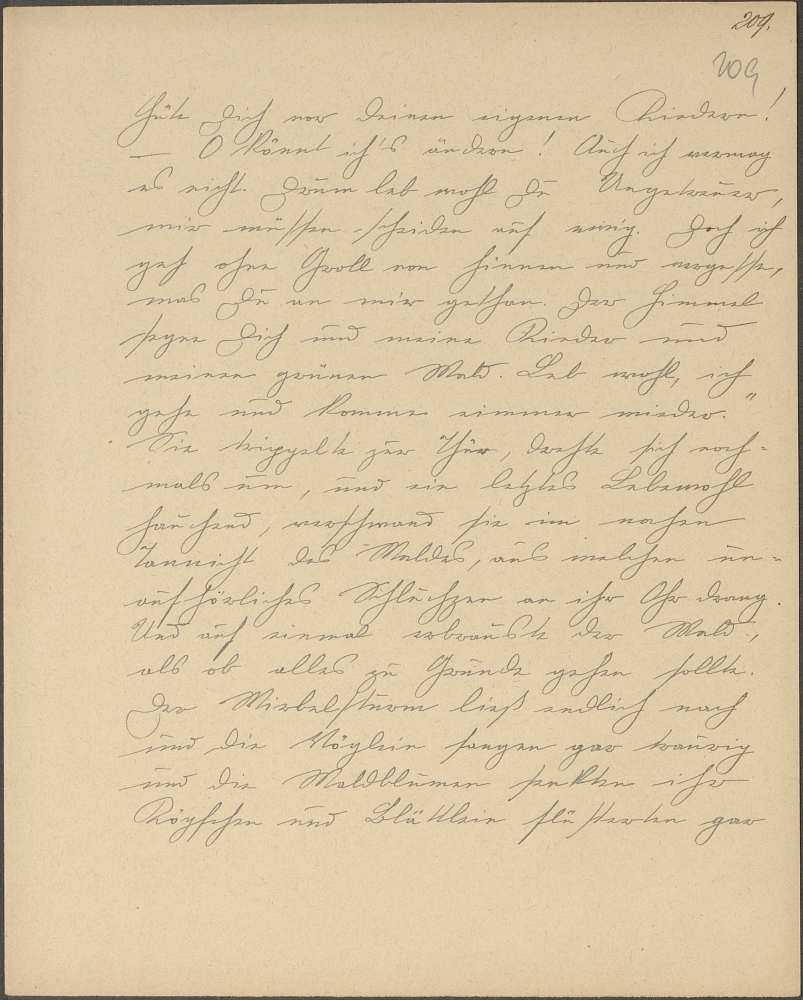 209.
209
Hüte Dich vor Deinen eigenen Kindern!
— O könnt ich's ändern! Auch ich vermag
es nicht. Drum leb wohl Du Ungetreuer,
wir müssen scheiden auf ewig. Doch ich
geh ohne Groll von hinnen und vergesse,
was Du an mir gethan. Der Himmel
segne Dich und meine Kinder und
meinen grünen Wald. Leb wohl, ich
gehe und komme nimmer wieder."
Sie trippelte zur Thür, drehte sich noch-
mals um, und ein letztes Lebewohl
hauchend, verschwand sie im nahen
Tannicht des Waldes, aus welchen un-
aufhörliches Schluchzen an ihr Ohr drang.
Und auf einmal erbrauste der Wald,
als ob alles zu Grunde gehen sollte.
Der Wirbelsturm ließ endlich nach
und die Vöglein sangen gar traurig
und die Waldblumen senkten ihr
Köpfchen und Blättlein flüsterten gar